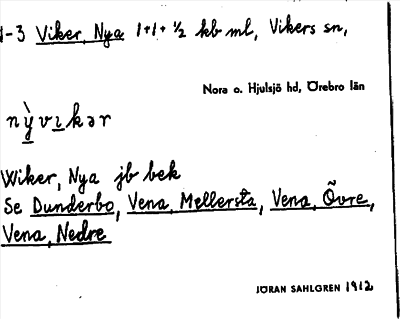 1-3 Viker, Nya 1+1+½ kb ml, Vikers sn,
Nora o. Hjulsjö hd, Örebro län
nỳ̲vi̲kər
Wiker, Nya jb bek
Se Dunderbo, Vena, Mellersta, Vena, Övre,
Vena, Nedre
JÖRAN SAHLGREN 1912